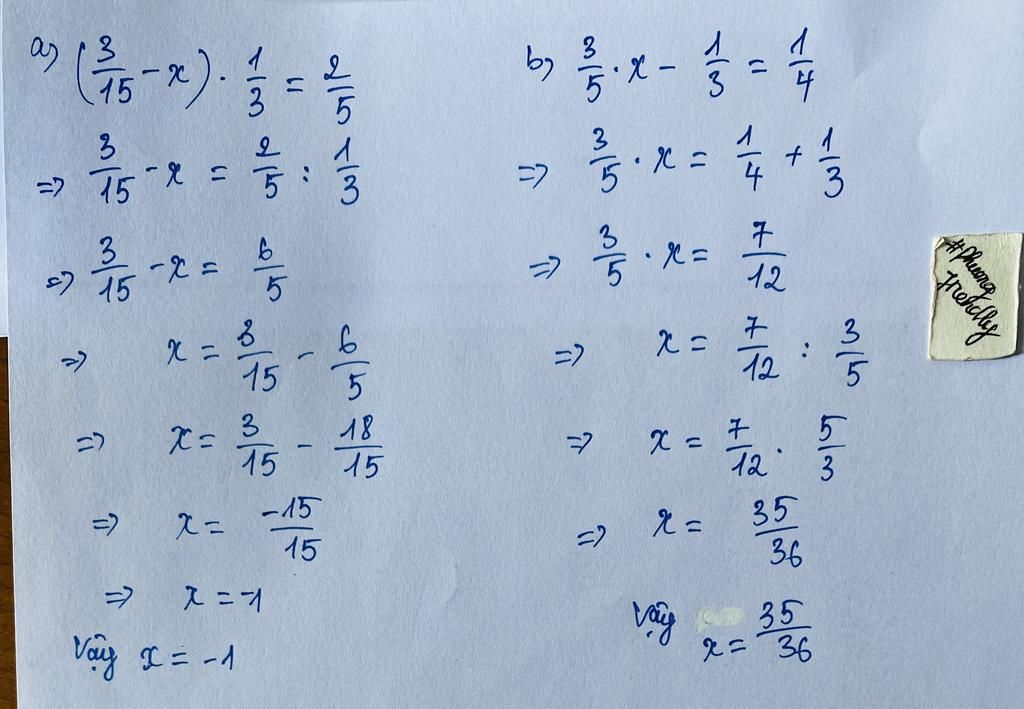 a) (3/15 - x) . 1/3 = 2/5
=> 3/15 - x = 2/5 : 1/3
=> 3/15 - x = 6/5
=> x = 3/15 - 6/5
=> x = 3/15 - 18/15
=> x = -15/15
=> x = -1
Vậy x = -1
b) 3/5 . x - 1/3 = 1/4
=> 3/5 . x = 1/4 + 1/3
=> 3/5 . x = 7/12
=> x = 7/12 : 3/5
=> x = 7/12 . 5/3
=> x = 35/36
Vậy x = 35/36
#Phuong